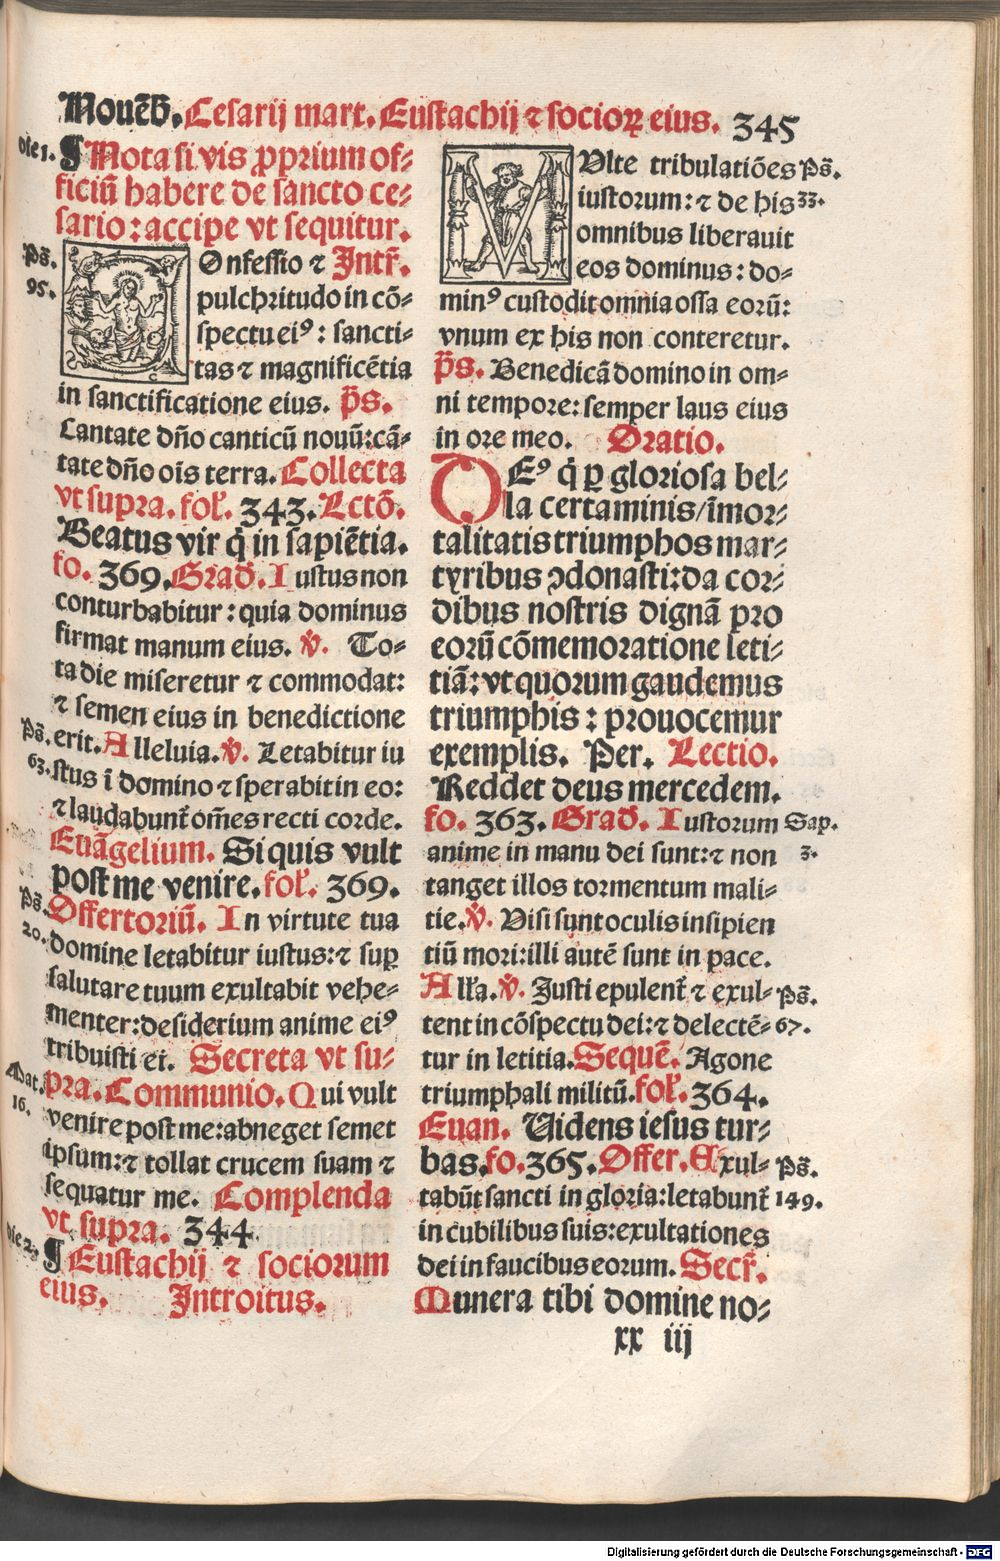 Nouēb. Cesarij mart. Eustachij ⁊ socioꝝ eius. 345
die 1. ¶ Nota si vis ꝓprium of⸗
ficiū habere de sancto ce⸗
sario: accipe vt sequitur.
Ps̄. COnfessio ⁊ Intr̄.
95. pulchritudo in cō⸗
spectu eiꝰ: sancti⸗
tas ⁊ magnificētia
in sanctificatione eius. p̄s.
Cantate dn̄o canticū nouū: cā⸗
tate dn̄o oīs terra. Collecta
vt supra. fol. 343. Lectō.
Beatus vir q̇ in sapiētia.
fo. 369. Grad. Iustus non
conturbabitur: quia dominus
firmat manum eius. v̇. To⸗
ta die miseretur ⁊ commodat:
⁊ semen eius in benedictione
Ps̄. erit. Alleluia. v̇. Letabitur iu
63. stus ī domino ⁊ sperabit in eo:
⁊ laudabunt̄ om̄es recti corde.
Euāgelium. Si quis vult
post me venire. fol. 369.
Ps̄. Offertoriū. In virtute tua
20. domine letabitur iustus: ⁊ suꝑ
salutare tuum exultabit vehe⸗
menter: desiderium anime eiꝰ
tribuisti ei. Secreta vt su⸗
Mat. pra. Communio. Qui vult
16. venire post me: abneget semet
ipsum: ⁊ tollat crucem suam ⁊
sequatur me. Complenda
vt supra. 344
die 2. ¶ Eustachij ⁊ sociorum
eius. Introitus.
MUlte tribulatiōes Ps̄.
iustorum: ⁊ de his 33.
omnibus liberauit
eos dominus: do⸗
minꝰ custodit omnia ossa eorū:
vnum ex his non conteretur.
p̄s. Benedicā domino in om⸗
ni tempore: semper laus eius
in ore meo. Oratio.
DEꝰ q̇ ꝑ gloriosa bel⸗
la certaminis/ īmor⸗
talitatis triumphos mar⸗
tyribus ꝯdonasti: da cor⸗
dibus nostris dignā pro
eorū cōmemoratione leti⸗
tiā: vt quorum gaudemus
triumphis: prouocemur
exemplis. Per. Lectio.
Reddet deus mercedem.
fo. 363. Grad. Iustorum Sap.
anime in manu dei sunt: ⁊ non 3.
tanget illos tormentum mali⸗
tie. v̇. Visi sunt oculis insipien
tiū mori: illi autē sunt in pace.
Alla. v̇. Justi epulent̄ ⁊ exul⸗ Ps̄.
tent in cōspectu dei: ⁊ delectē⸗ 67.
tur in letitia. Sequē. Agone
triumphali militū. fol. 364.
Euan. Videns iesus tur⸗
bas. fo. 365. Offer. Exul⸗ Ps̄.
tabūt sancti in gloria: letabunt̄ 149.
in cubilibus suis: exultationes
dei in faucibus eorum. Secr̄.
Munera tibi domine no⸗
xx iij
Digitalisierung gefördert durch die Deutsche Forschungsgemeinschaft - DFG